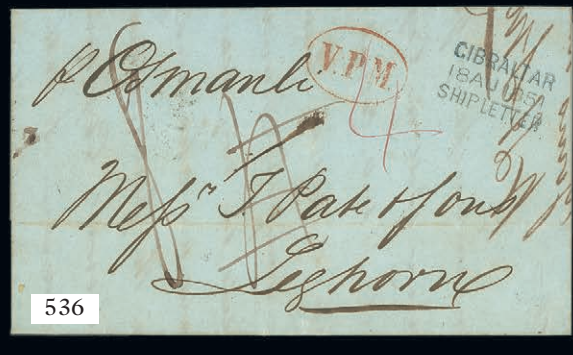 p Osmanli
V.P.M.
GIBRALTAR
18 AU 185
SHIPLETTER
4
Messrs T. Pate & Sons
Leghorn
536